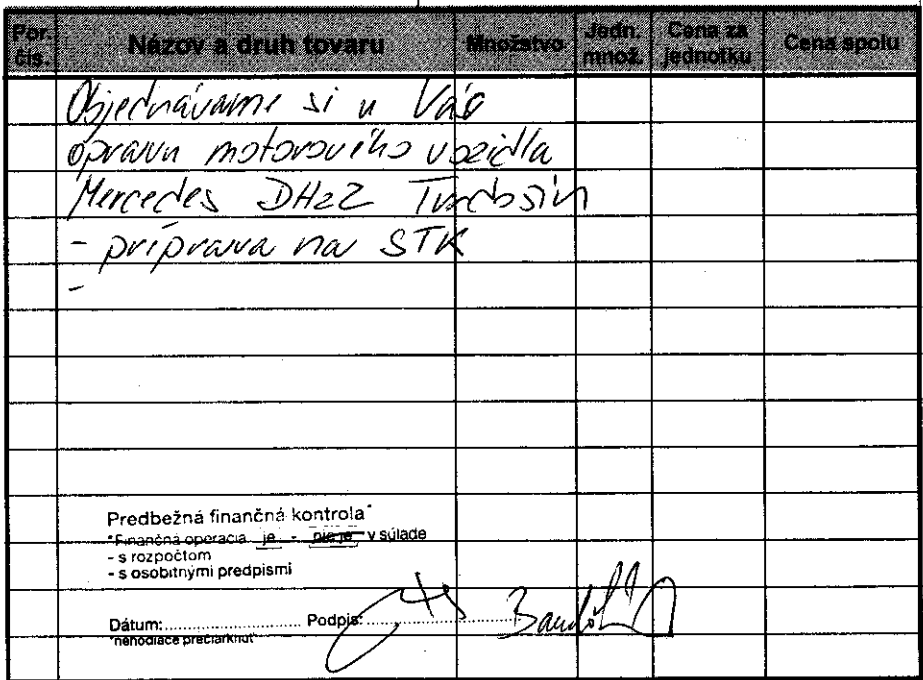 Por. čís. Názov a druh tovaru Množstvo Jedn. množ. Cena za jednotku Cena spolu
Objednávame si u Vás
opravu motorového vozidla
Mercedes
- príprava na STK
-
Predbežná finančná kontrola*
*Finančná operácia je - nie je v súlade
- s rozpočtom
- s osobitnými predpismi
Dátum:........................ Podpis:........................
*nehodiace prečiarknuť*